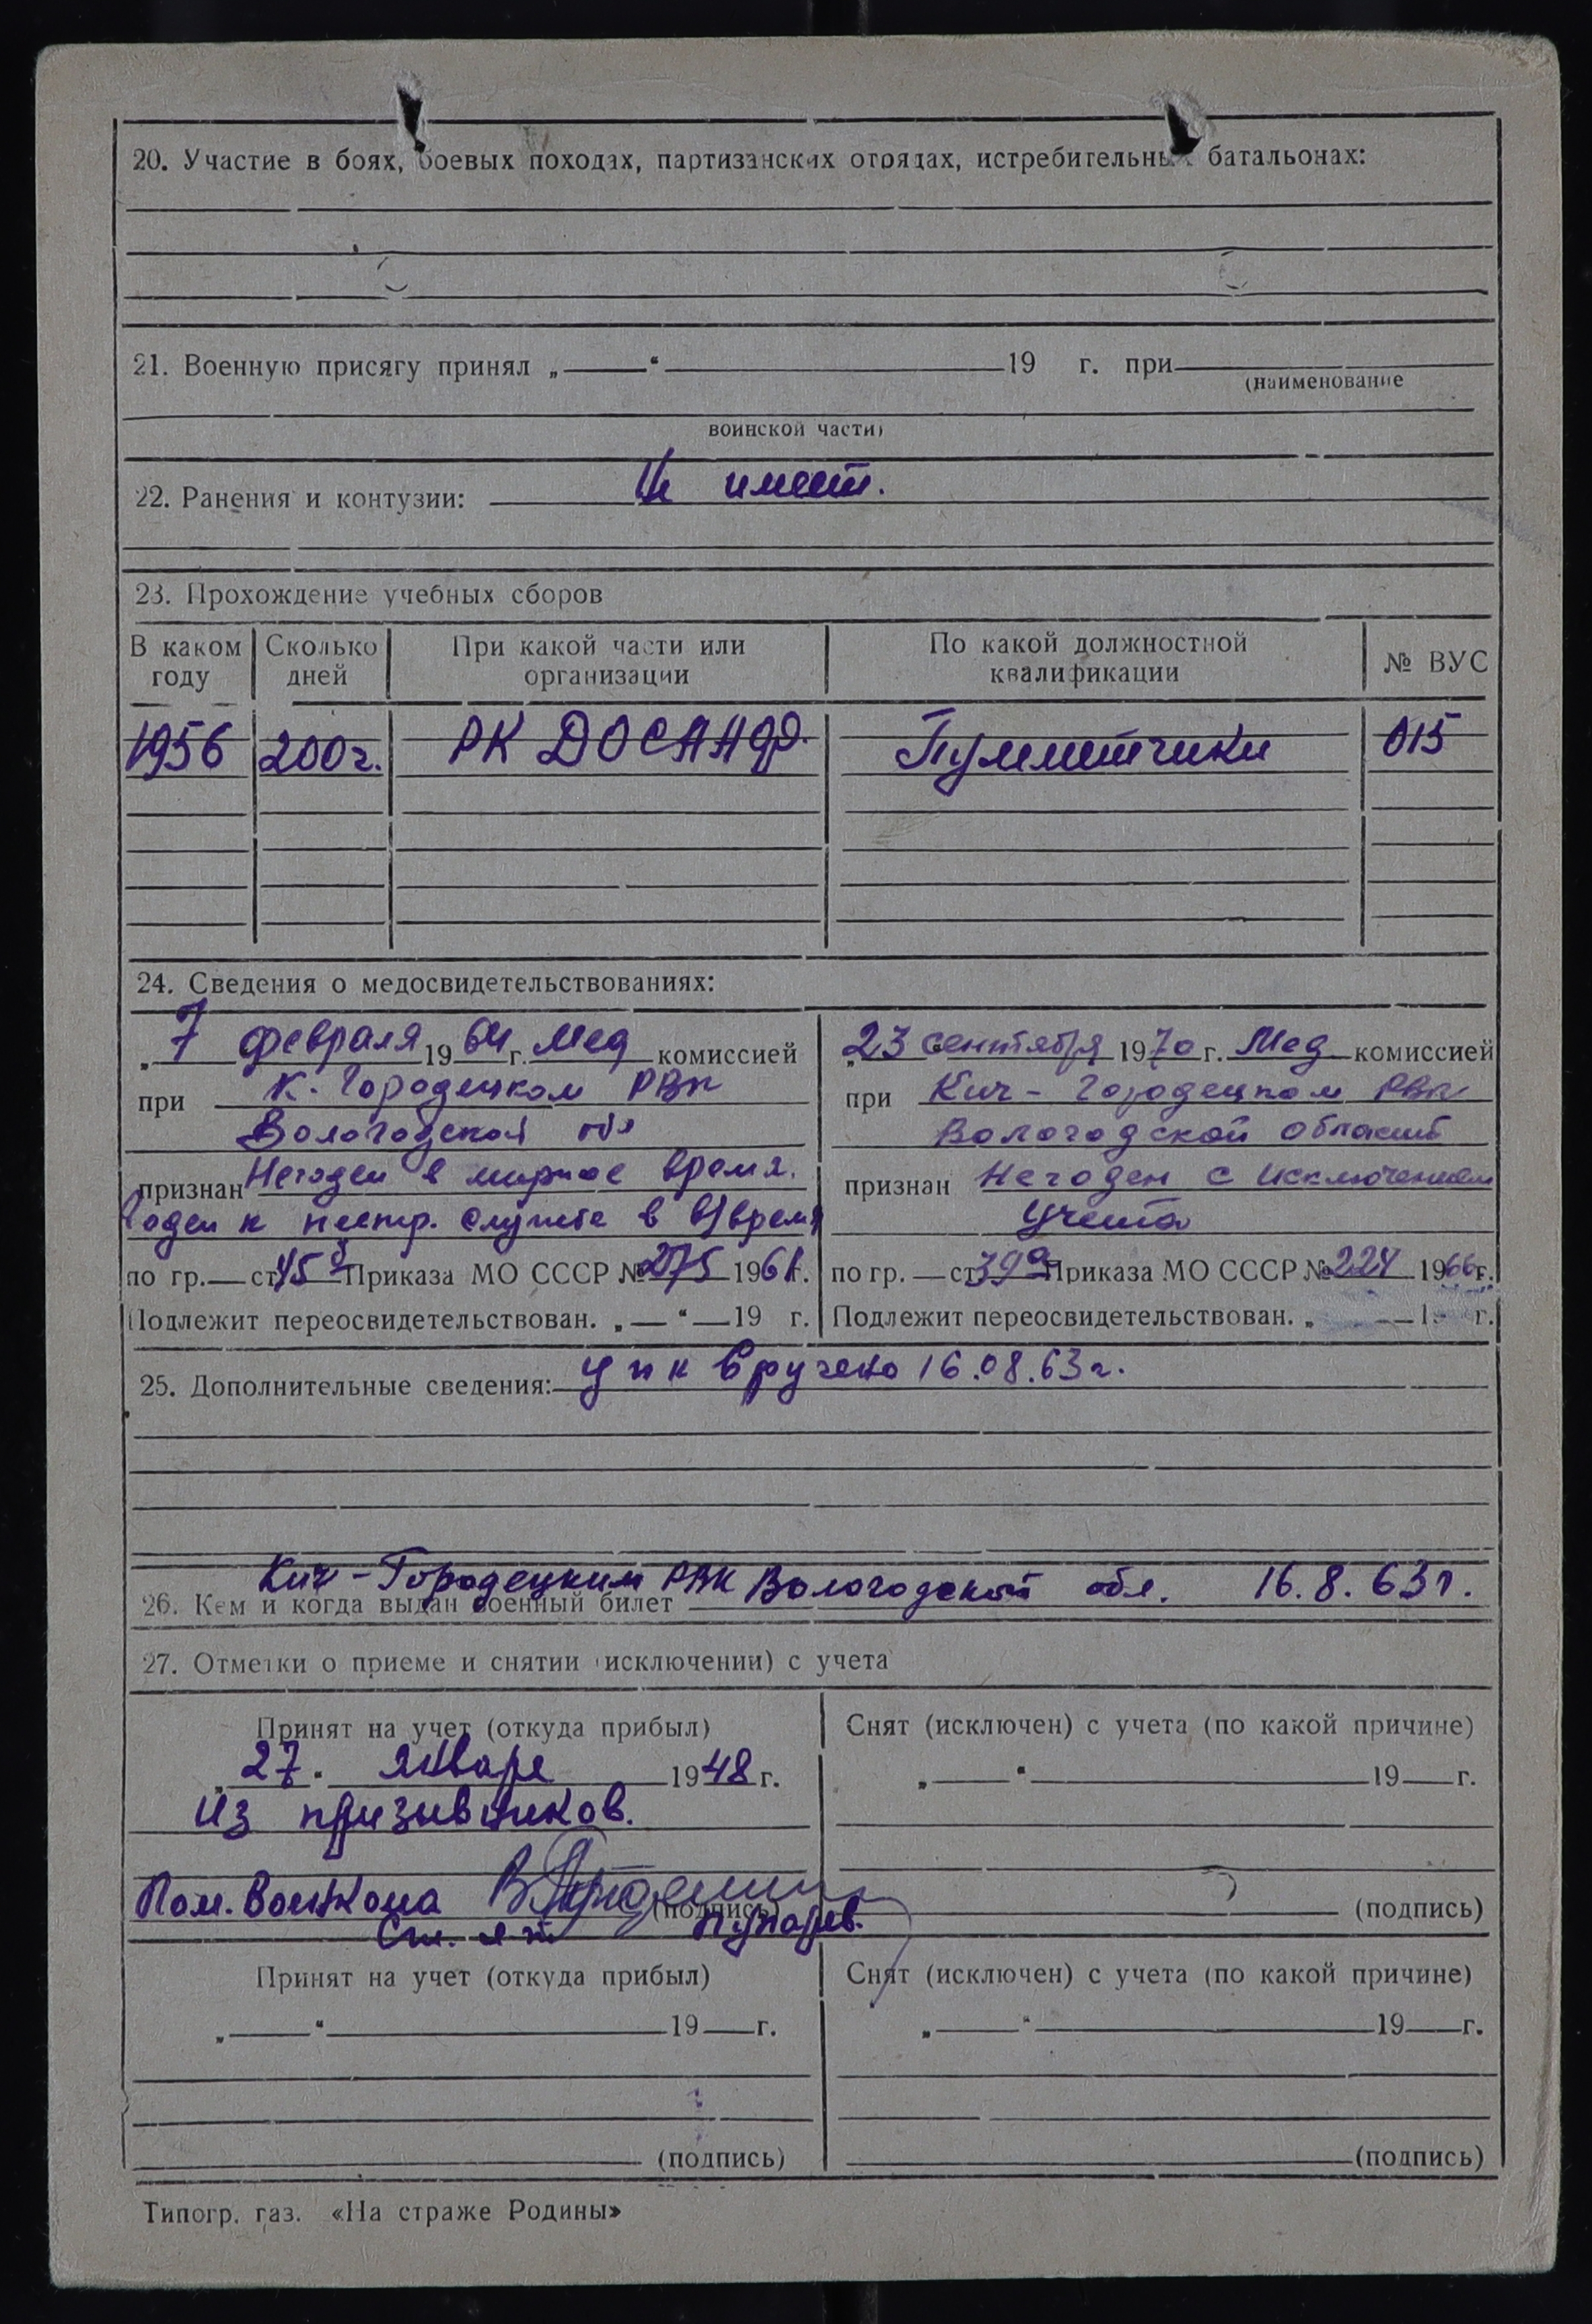 20. Участие в боях, боевых походах, партизанских отрядах, истребительных батальонах:
21. Военную присягу принял „ “ 19 г. при
(наименование
воинской части)
22. Ранения и контузии: Не имеет.
23. Прохождение учебных сборов
В каком году Сколько дней При какой части или организации По какой должностной квалификации № ВУС
1956 200г. РК ДОСААФ. Пулеметчики 015
24. Сведения о медосвидетельствованиях:
„7 февраля 1964 г. Мед комиссией
при К. Городецком РВК
Вологодской обл
признан Негоден в мирное время.
Годен к нестр. службе в в/время
по гр. — ст 45б Приказа МО СССР № 275 1961г.
Подлежит переосвидетельствован. „ — “ — 19 г.
„23 сентября 1970 г. Мед комиссией
при Кич - Городецком РВК
Вологодской области
признан Негоден с исключением
учета
по гр. — ст 39а Приказа МО СССР № 224 1966г.
Подлежит переосвидетельствован. „ — г.
25. Дополнительные сведения: вручено 16.08.63г.
Кич-Городецким РВК Вологодской обл. 16.8.63г.
26. Кем и когда выдан военный билет
27. Отметки о приеме и снятии (исключении) с учета
Принят на учет (откуда прибыл)
„27“ января 1948 г.
из призывников.
Пом. Военкома
(подпись)
Ст. л-т
Снят (исключен) с учета (по какой причине)
„ “ 19 г.
(подпись)
Принят на учет (откуда прибыл)
„ “ 19 г.
(подпись)
Снят (исключен) с учета (по какой причине)
„ “ 19 г.
(подпись)
Типогр. газ. «На страже Родины»